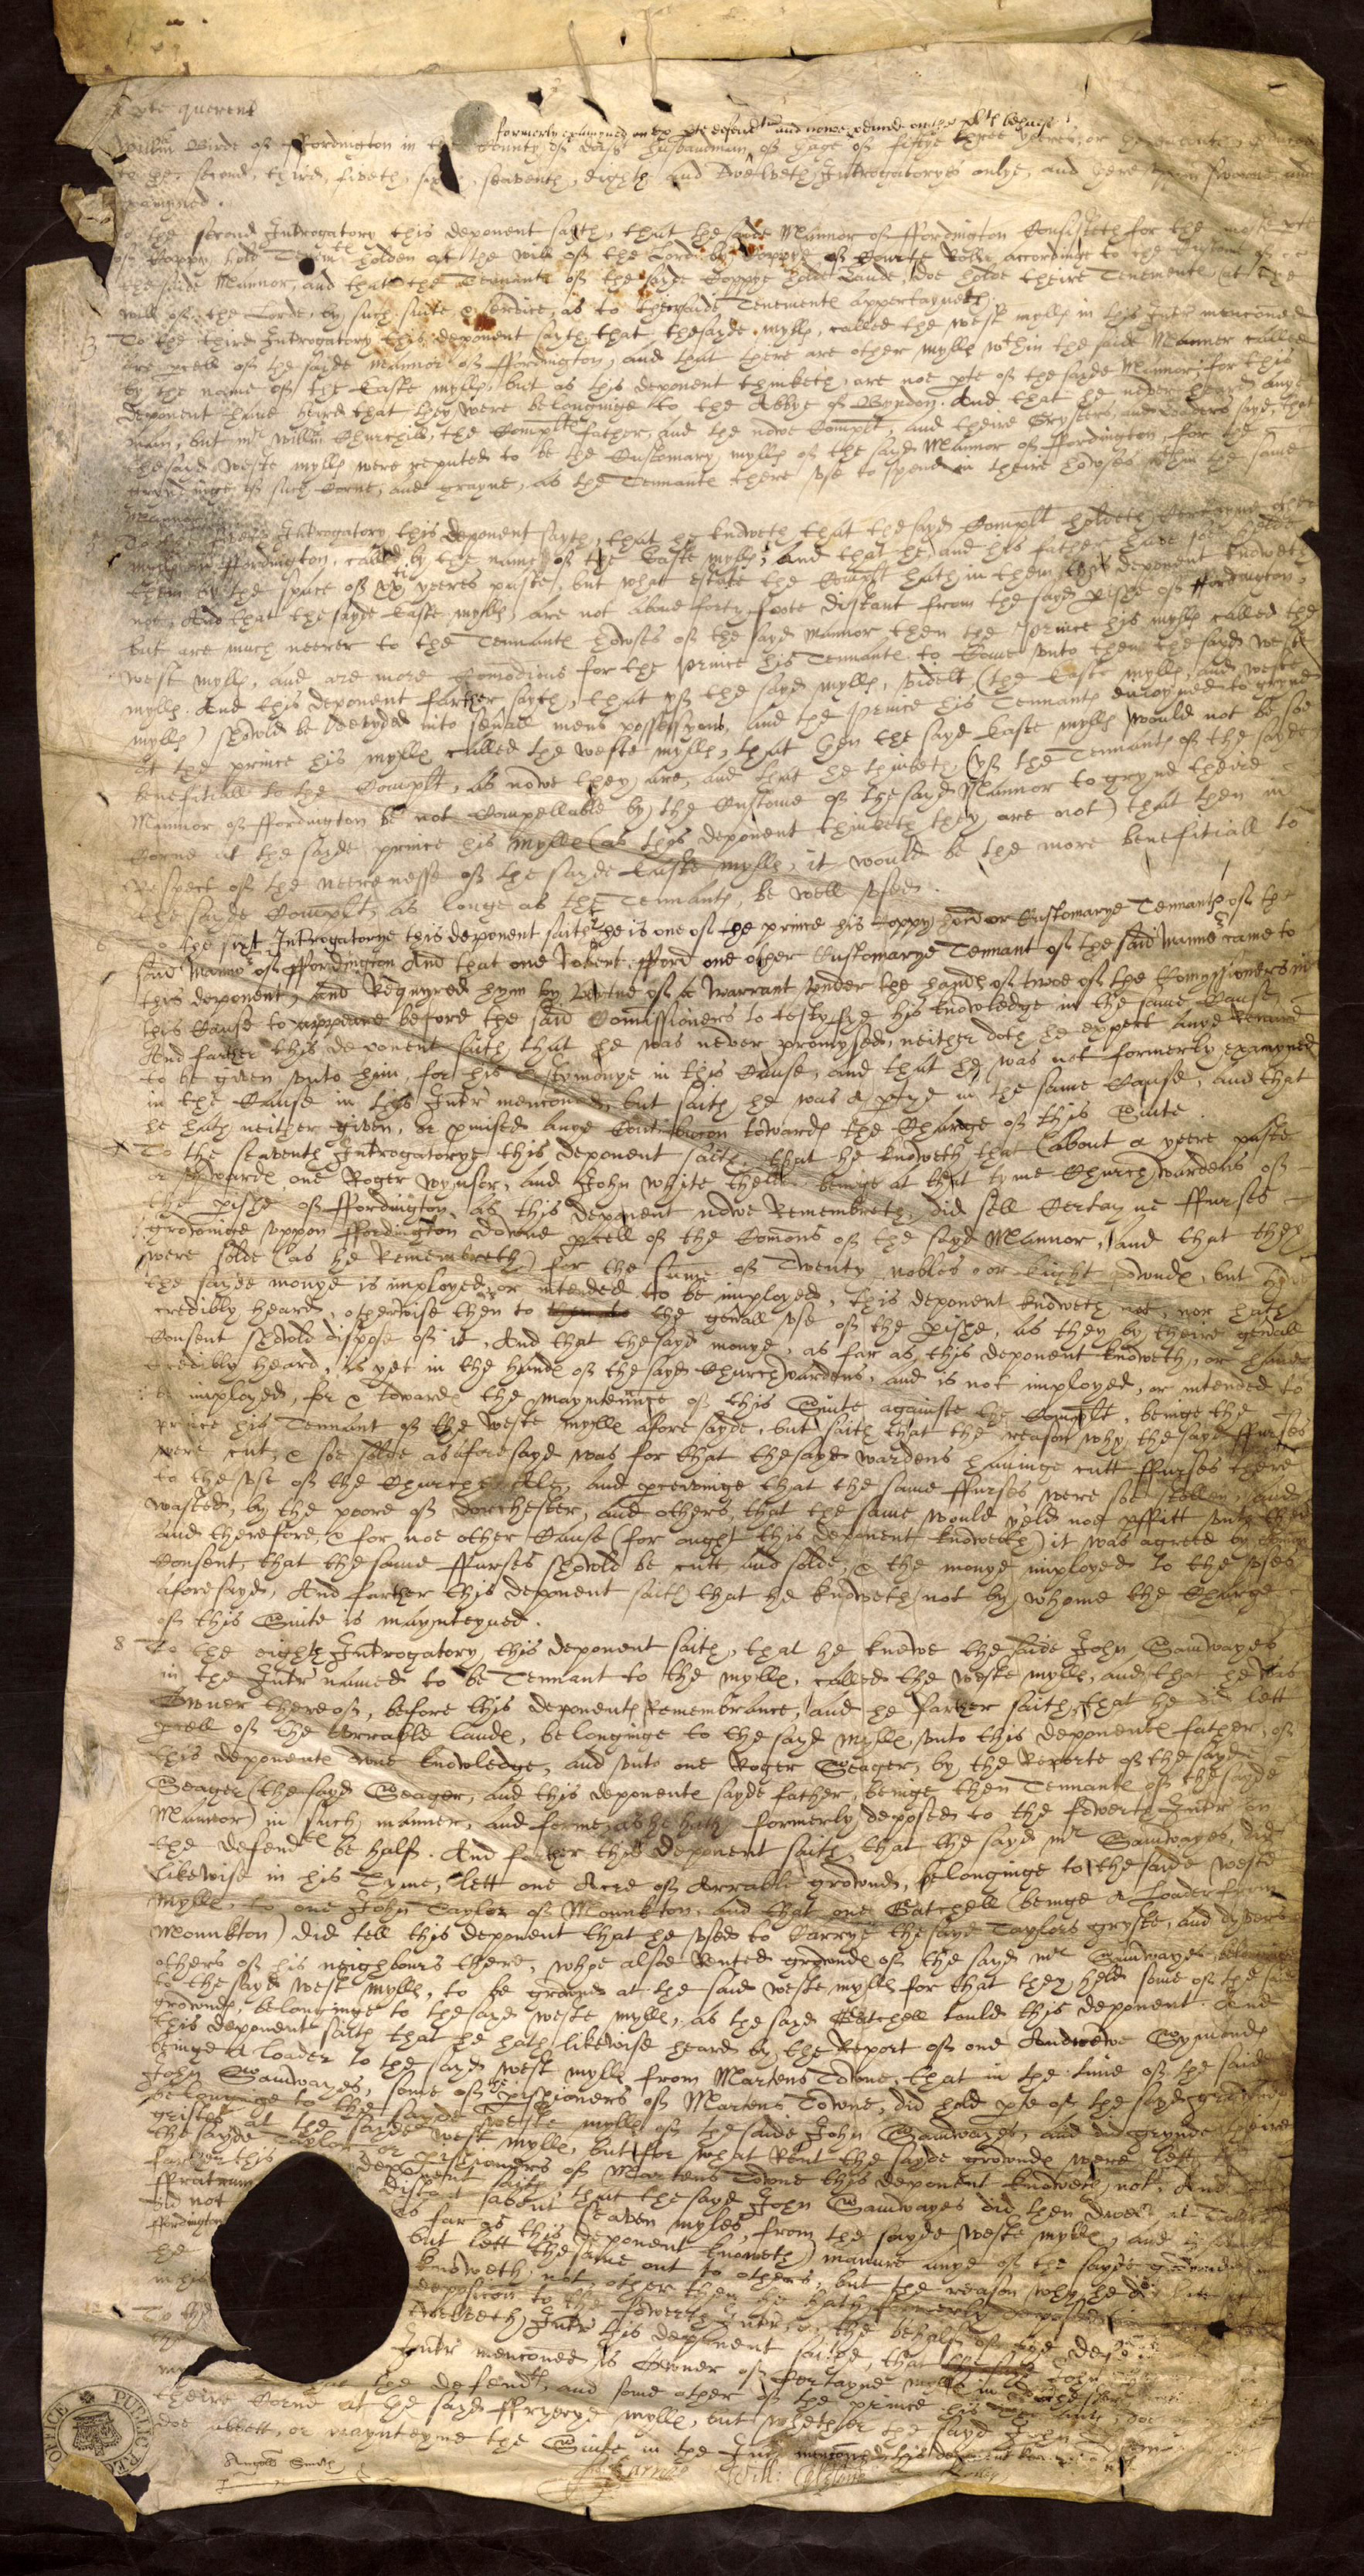 Ex pte querent
formerly examyned on ye pte defendtes and nowe pduced on the pltes behalfe
Willm Birde of ffordington in the County of Dors husbandman of thage of fiftye three yeeres or
to the second, third, fiveth, sixt, seaventh, eight and twelveth Introgatorys onlye, and herevppon sworne and
examyned.
To the second Introgatory this deponent sayth, that the saide Mannor of ffordington Consisteth for the most pte
of Coppy hold Tenemtes holden at the will of the Lord by Coppye of Courte Rolle, accordinge to the Custome of
the saide Mannor, and that the Tennantes of the saide Coppye holde Lande, doe holde theire Tenementes at the
will of the Lorde, by such suite & service, as to thesaide Tenementes appertayneth.
3 To the third Introgatory this deponent saith, that thesayde mylls, called the west mylls in this Intr menconed
are pcell of the sayde Mannor of ffordington, and that there are other mylls wthin the saide Mannor called
by the name of the Easte mylls, but as this deponent thinketh, are noe pte of the sayde Mannor, for this
deponent have heard that they were belonginge to the Abbye of Byndon. And that he never heard anye
man, but mr willm Churchill, the Complts father, and the nowe Complt, and theire Grysters, and Loaders saye, that
thesaide Weste mylls were reputed to be the Customary mylls of the sayd Mannor of ffordington, for the
gryndinge of such Corne, and grayne, as the Tennantes there vse to spend in theire howses wthin the same
Mannor
5 To the fiveth Introgatory this deponent sayth, that he knoweth that thesayd Complt holdeth Certayne other
mylls in ffordington, called by the name of the Easte mylls, and that he and his father have soe helde
them by the space of xxti yeeres paste, but what estate the Complt hath in them this deponent knoweth
not, And that the sayde Easte mylls, are not aboue forty foote distant from the sayd pishe of ffordington,
but are much neerer to the Tennantes howses of the sayd Mannor, then the Prince his mylls called the
west mylls, and are more Comodious for the Prince his Tennantes to Come vnto then the sayd weste
mylls. And this deponent farther sayth, that yf the sayd mylls, videlt (the Easte mylls, and weste
mylls) should be devyded into seuall mens possessyons, and the Prince his Tennantes enioyned to grynd
at the prince his mylls called the weste mylls, that then the sayd Easte mylls would not be soe
beneficiall to the Complt, as nowe they are, and that he thinketh, (yf the Tennantes of the sayde
Mannor of ffordington be not Compellable by the Custome of thesayd Mannor to grynd theire
Corne at the sayde prince his mylls (as this deponent thinketh they are not) that then in
Respect of the neerenesse of the sayde Easte mylls, it would be the more beneficiall to
the sayde Complt, as longe as the Tennantes, be well vsed.
6 To the sixt Introgatorye this deponent saith he is one of the prince his Coppy hold or Customarye Tennantes of the
said Mannor of ffordington And that one Robert fford one other Customarye Tennant of the said Mannor came to
this deponent, and Requyred hym by vertue of a Warrant vnder the handes of twoe of the Comyssioners in
this Cause to appeare before the said Comissioners to testyfye his knowledge in the same Cause
And farther this deponent saith, that he was never promysed, neither doth he expect anye Reward
to be given vnto him, for his testymonye in this Cause, and that he was not formerly examyned
in the Cause in this Intr menconed, but saith he was a ptye in the same Cause, and that
he hath neither given, or pmised anye Contribucon towardes the Charge of this Suite.
7 To the seaventh Introgatorye this deponent saith that he knoweth that (about a yeere paste
or vpwardes one Roger wynsor, and John white thelder beinge at that tyme Churchwardens of
the pishe of ffordington, as this deponent nowe Remembreth, did sell Certayne ffurses
growinge vppon ffordington downe pcell of the Comons of the sayd Mannor, and that they
were solde (as he Remembreth) for the sume of Twenty nobles or Eight poundes, but howe
the sayde monye is imployed, or intended to be imployed, this deponent knoweth not, nor hath
credibly heard, otherwise then to the genall vse of the pishe, as they by theire genall
Consent should dispose of it, And that thesayd monye, as far as this deponent knoweth, or have
credibly heard, is yet in the handes of the sayd Churchwardens, and is not imployed, or intended to
be imployed, for & towardes the mayntennce of this Suite againste the Complt, beinge the
prince his Tennant of the weste mylls aforesayde, but saith that the reason why the sayd ffurses
were cut, & soe solde as aforesayd was for that thesayd wardens havinge cutt ffurses there
to the vse of the Churche Ale, and pceivinge that the same ffurses were soe stollen, and
wasted, by the poore of Dorchester, and others, that the same would yeld noe pffitt vnto them
and therefore, & for noe other Cause (for ought this deponent knoweth) it was agreed by Comon
Consent, that the same ffurses should be cutt and solde, & the monye imployed to the vses
aforesayd, And farther this deponent saith that he knoweth not by whome the Charge
of this Suite is maynteyned.
8 To the eight Introgatory this deponent saith, that he knewe the saide John Samwayes
in the Intr named to be Tennant to the mylls, called the weste mylls, and that he was
Owner thereof, before this deponentes Remembrance, and he farther saith, that he did lett
pcell of the Arrable landes, belonginge to the sayd mylls, vnto this deponentes father, of
this deponentes owne knowledge, and vnto one Roger Seager, by the Reporte of the sayde
Seager (the sayd Seager, and this deponentes sayde father, beinge then Tennantes of thesayde
Mannor) in such manner, and forme, as he hath formerly deposed to the fowerth Intr on
the defendtes behalf. And farther this deponent saith, that the sayd mr Samwayes, did
likewise in his Tyme, lett one Acre of Arrable grownd, belonginge to the saide weste
mylls, to one John Taylor of Monnkton, and that one Gatchell (beinge a Loader from
Monnkton) did tell this deponent that he vsed to Carrye the sayd Taylors gryste, and dyvers
others of his neighbours there, whoe alsoe Rented growndes of the sayd mr Samwayes belonginge
to the sayd West mylls, to be grownd at the said weste mylls for that they held some of the said
growndes, belonginge to thesayd weste mylls, as the sayd Gatchell tould this deponent. And
this deponent saith that he hath likewise heard by the Report of one Andrewe Symondes
beinge a loader to the sayd west mylls from Martens Towne, that in the time of the said
John Samwayes, some of the pishioners of Martens Towne, did hold pte of the sayd growndes
belonginge to the sayde weste mylls of the saide John Samwayes, and did grynde theire
gristes at the sayde West mylls, but for what Rent the sayde growndes were lett
the sayde Taylor, or pishioners of Martens Towne this deponent knoweth not. And
farther this deponent saith that the sayd John Samwayes did then dwell at Toller
ffratrum distant about seaven myles, from the sayde weste mylls, and
did not as far as this deponent knoweth) manure anye of the sayde growndes
ffordington but lett thesame out to others, but the reason why he did lett
he knoweth not other then he hath formerly deposed
in his deposicon to the fowerth Intr on the behalf of the defendtes
To the twelveth Intr this deponent saithe, that John
the Intr menconed is Owner of Certayne mylls in Dorchester
the defendtes, and some other of the prince his
theire Corne at the sayd ffryerye mylls, but whether the sayd John
doe abbett, or maynteyne the Suite in the Intr menconed this deponent knoweth not
Angell Smith
Will:
PUBLIC RECORD OFFICE